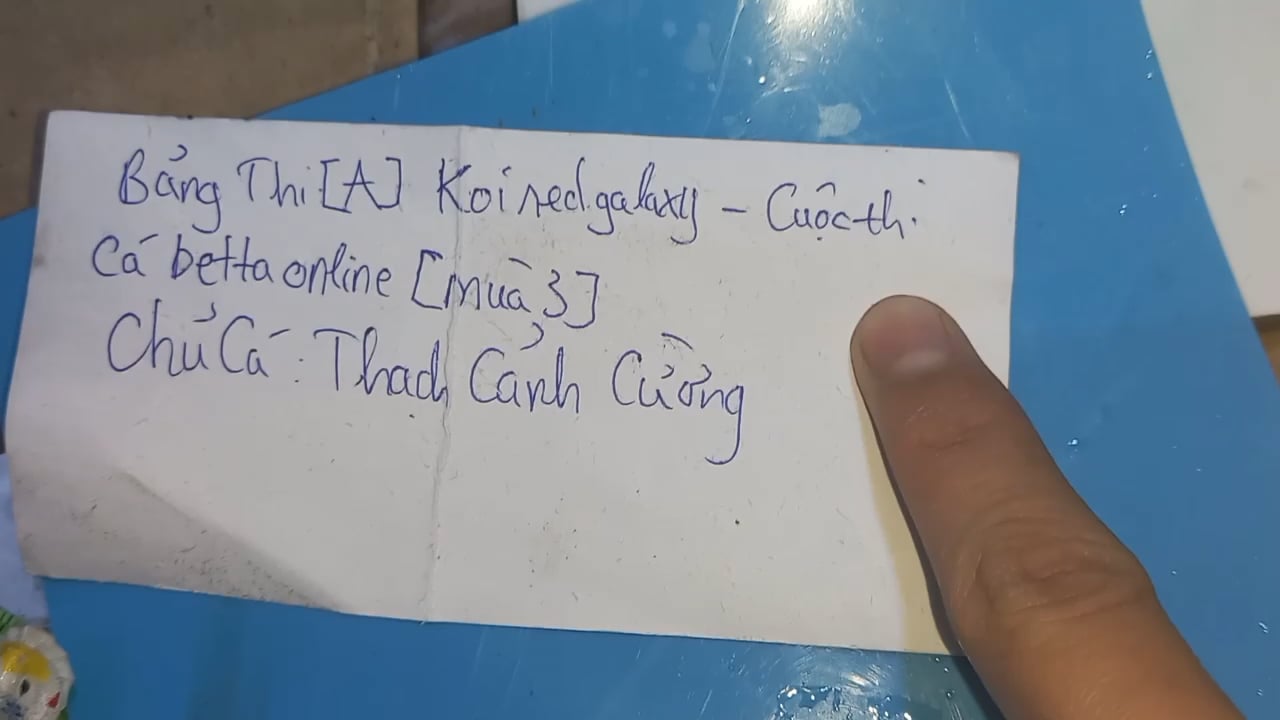 Bảng Thi [A] Koi red galaxy - Cuộc thi
Cá betta online [mùa 3]
Chủ Cá: Thach Cảnh Cường